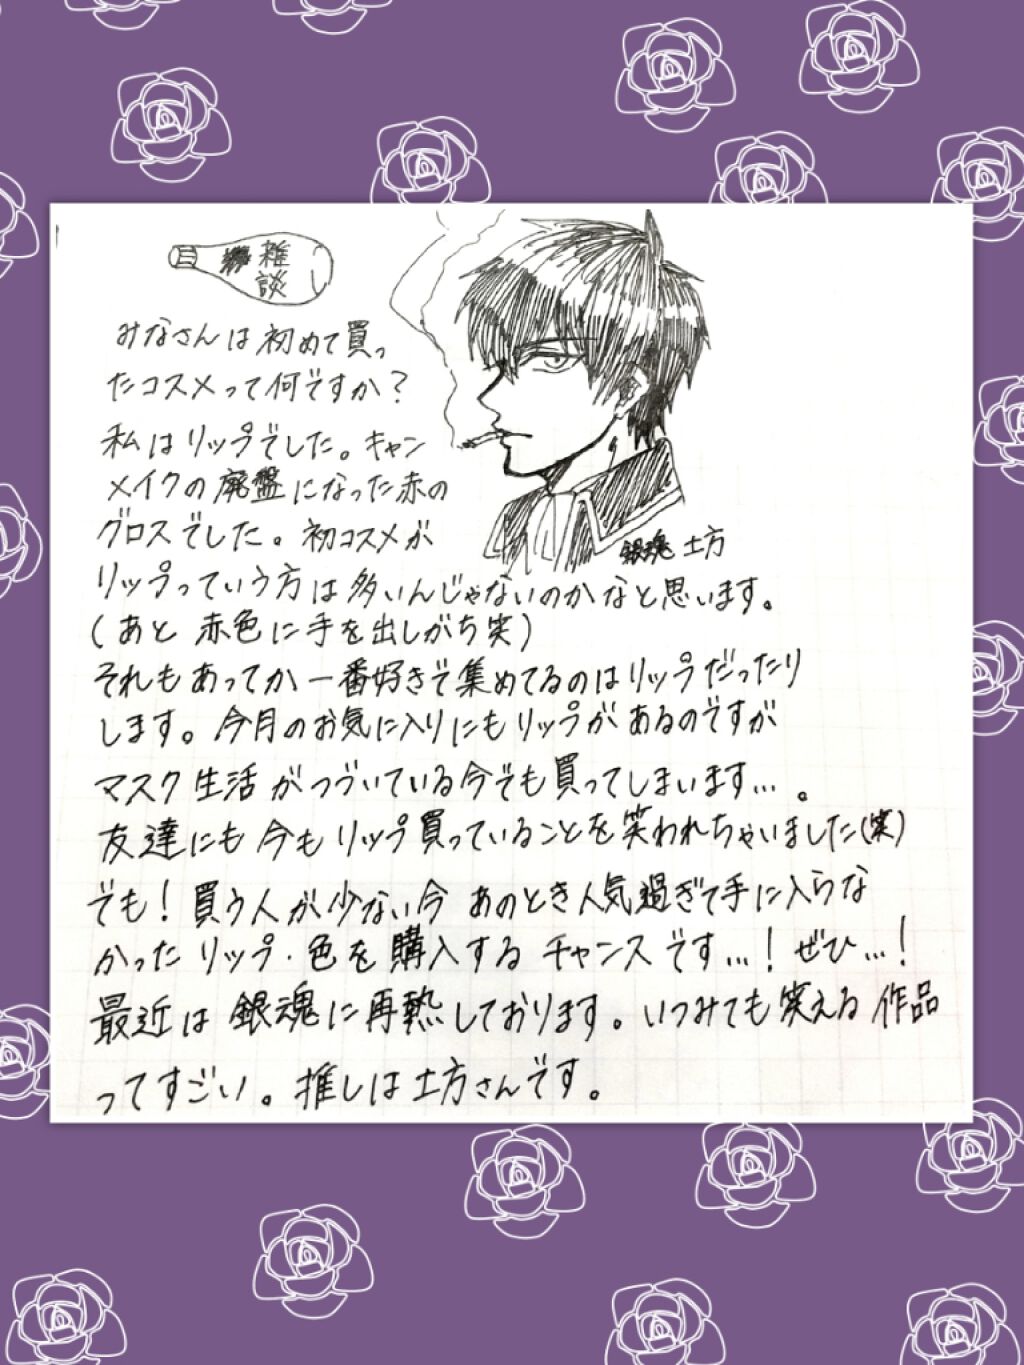 雑
談
みなさんは初めて買っ
たコスメって何ですか?
私はリップでした。キャン
メイクの廃盤になった赤の
グロスでした。初コスメが
銀魂 土方
リップっていう方は多いんじゃないのかなと思います。
(あと 赤色に手を出しがち笑)
それもあってか一番好きで集めてるのはリップだったり
します。今月のお気に入りにもリップがあるのですが
マスク生活がつづいている今でも買ってしまいます…。
友達にも今もリップ買っていることを笑われちゃいました(笑)
でも!買う人が少ない今 あのとき人気過ぎて手に入らな
かったリップ・色を購入するチャンスです…!ぜひ…!
最近は銀魂に再熱しております。いつみても笑える作品
ってすごい。推しは土方さんです。